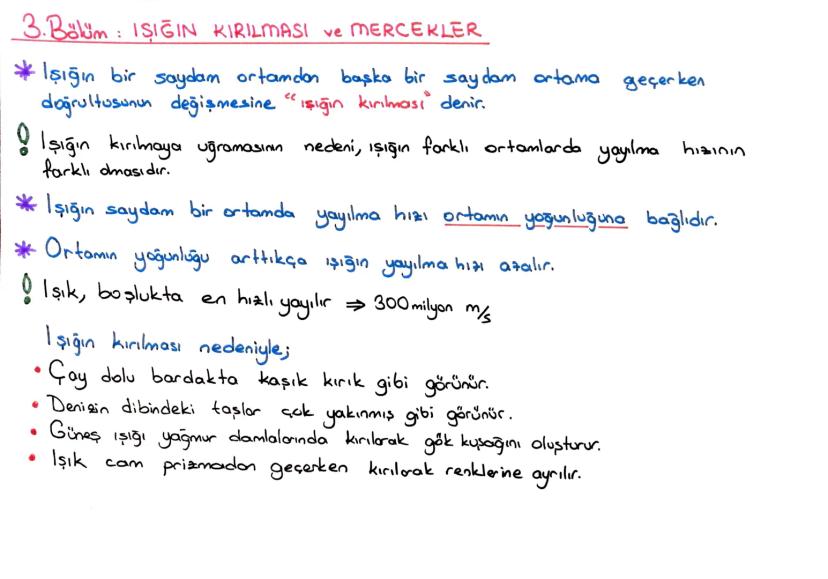 3.Bölüm : IŞIĞIN KIRILMASI ve MERCEKLER
* Işığın bir saydam ortamdan başka bir saydam ortama geçerken
doğrultusunun değişmesine "ışığın kırılması" denir.
! Işığın kırılmaya uğramasının nedeni, ışığın farklı ortamlarda yayılma hızının
farklı olmasıdır.
* Işığın saydam bir ortamda yayılma hızı ortamın yoğunluğuna bağlıdır.
* Ortamın yoğunluğu arttıkça ışığın yayılma hızı azalır.
! Işık, boşlukta en hızlı yayılır ⇒ 300 milyon m/s
Işığın kırılması nedeniyle;
• Çay dolu bardakta kaşık kırık gibi görünür.
• Denizin dibindeki taşlar çok yakınmış gibi görünür.
• Güneş ışığı yağmur damlalarında kırılarak gök kuşağını oluşturur.
• Işık cam prizmadan geçerken kırılarak renklerine ayrılır.